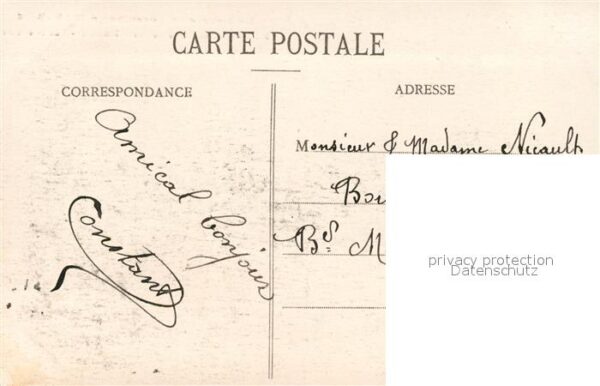 CARTE POSTALE
CORRESPONDANCE
ADRESSE
Amical bonjour
Constant
Monsieur & Madame Nicault
privacy protection
Datenschutz